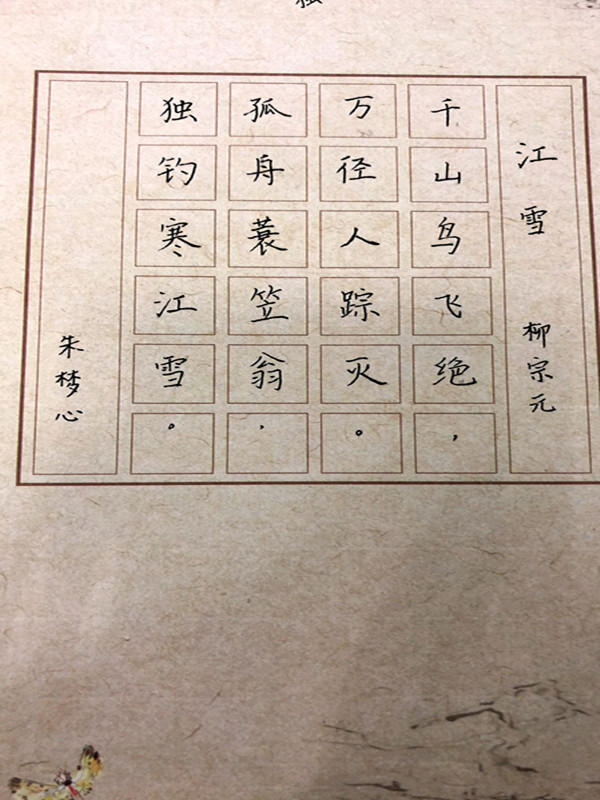 江雪 柳宗元
千山鸟飞绝，
万径人踪灭。
孤舟蓑笠翁，
独钓寒江雪。
朱梦心